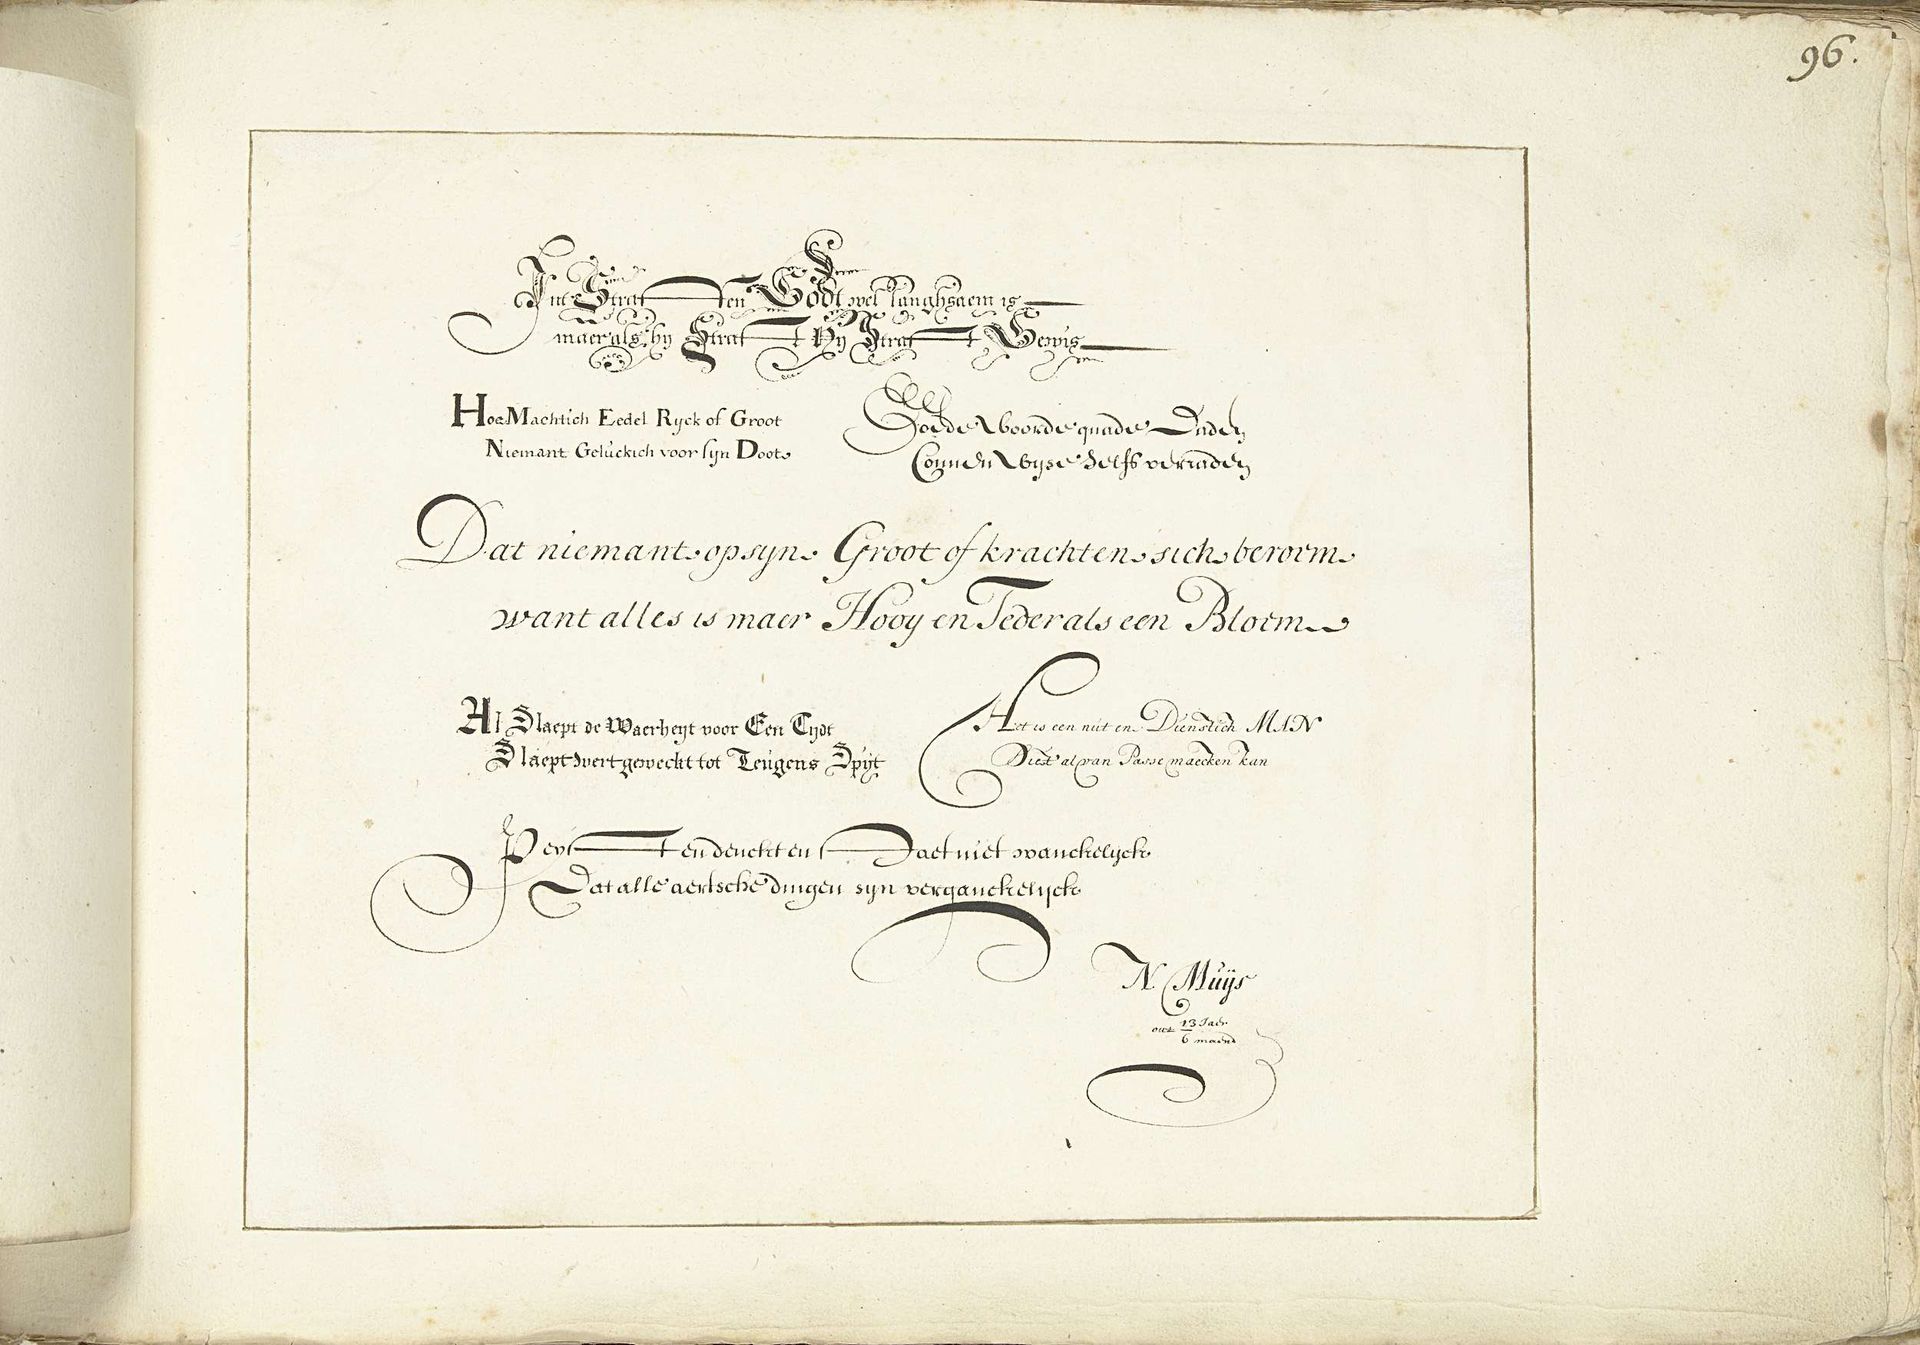 96.
Int Straffen Godt wel langhsaem is
maer als hy Straft Hy Straft Gewis
Hoe Machtich Eedel Ryck of Groot
Niemant Geluckich voor syn Doot
Goede Woorde quade Daden
Connen Wyse Selfs verraden
Dat niemant op syn Groot of krachten sich beroem
want alles is maer Hooy en Teder als een Bloem
Al Slaept de Waerheyt voor Een Tydt
Slaept wert geweckt tot Leugens Spyt
Het is een nut en Dienstich MAN
Diest al van Passe maecken kan
Peyst en denckt en staet niet wanckelyck
Dat alle aertsche dingen syn verganckelyck
N Muijs
out 13 Jaer
6 maend